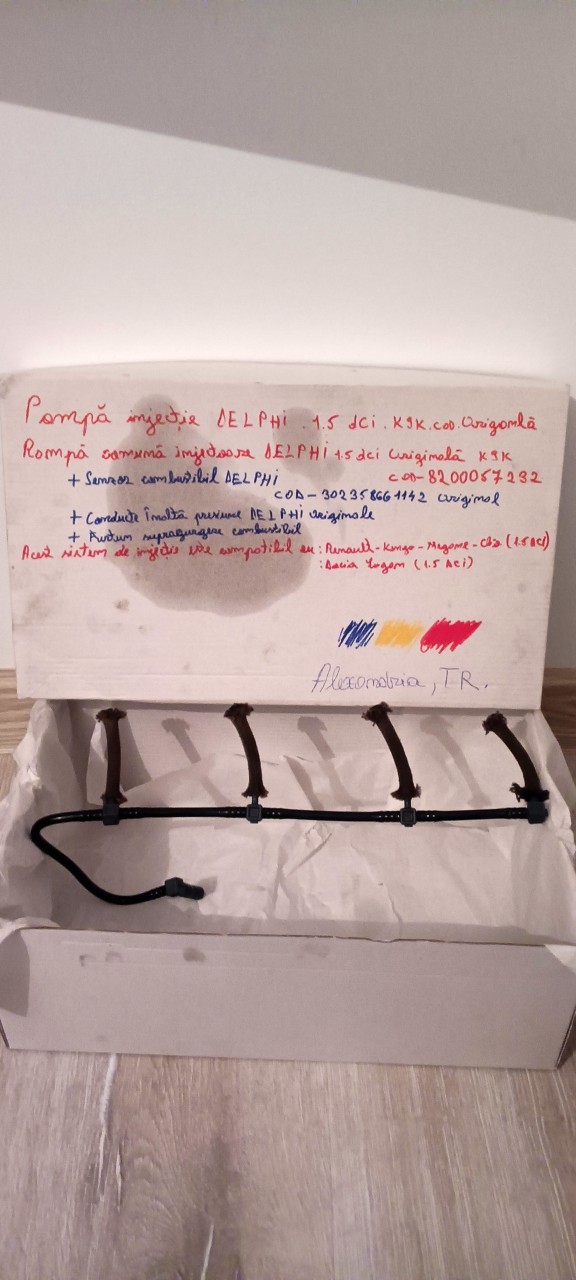 Pompă injecție DELPHI 1.5 dCi. K9K. cod. Originală
Rampă comună injectoare DELPHI 1.5 dci Originală K9K
+ Senzor combustibil DELPHI
COD-8200057232
COD-30235866 1142 Original
+ Conducte înaltă presiune DELPHI Originale
+ Furtun suprapurgere combustibil
Acest sistem de injecție este compatibil cu: Renault-Kongo-Megane-Clio (1.5 DCI)
: Dacia Logan (1.5 DCi)
Alexandria, TR.